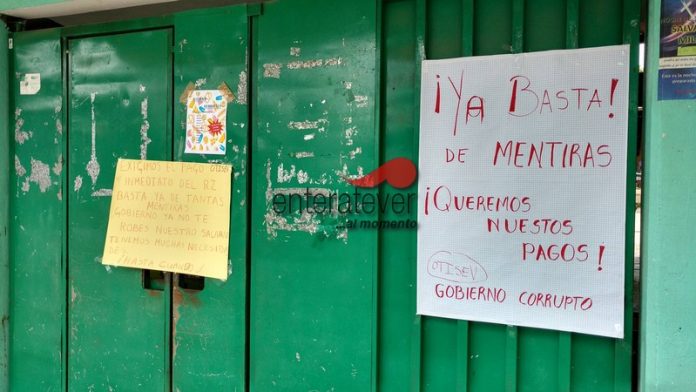 EXIGIMOS EL PAGO
INMEDIATO DEL RZ
BASTA YA DE TANTAS
MENTIRAS
GOBIERNO YA NO TE
ROBES NUESTRO SALARIO
TENEMOS MUCHAS NECESIDA
DES
¡HASTA CUANDO!
enteratever
...al momento
¡YA BASTA!
DE MENTIRAS
¡QUEREMOS
NUESTOS
PAGOS!
OTISEV
GOBIERNO CORRUPTO
SALVA
MIL